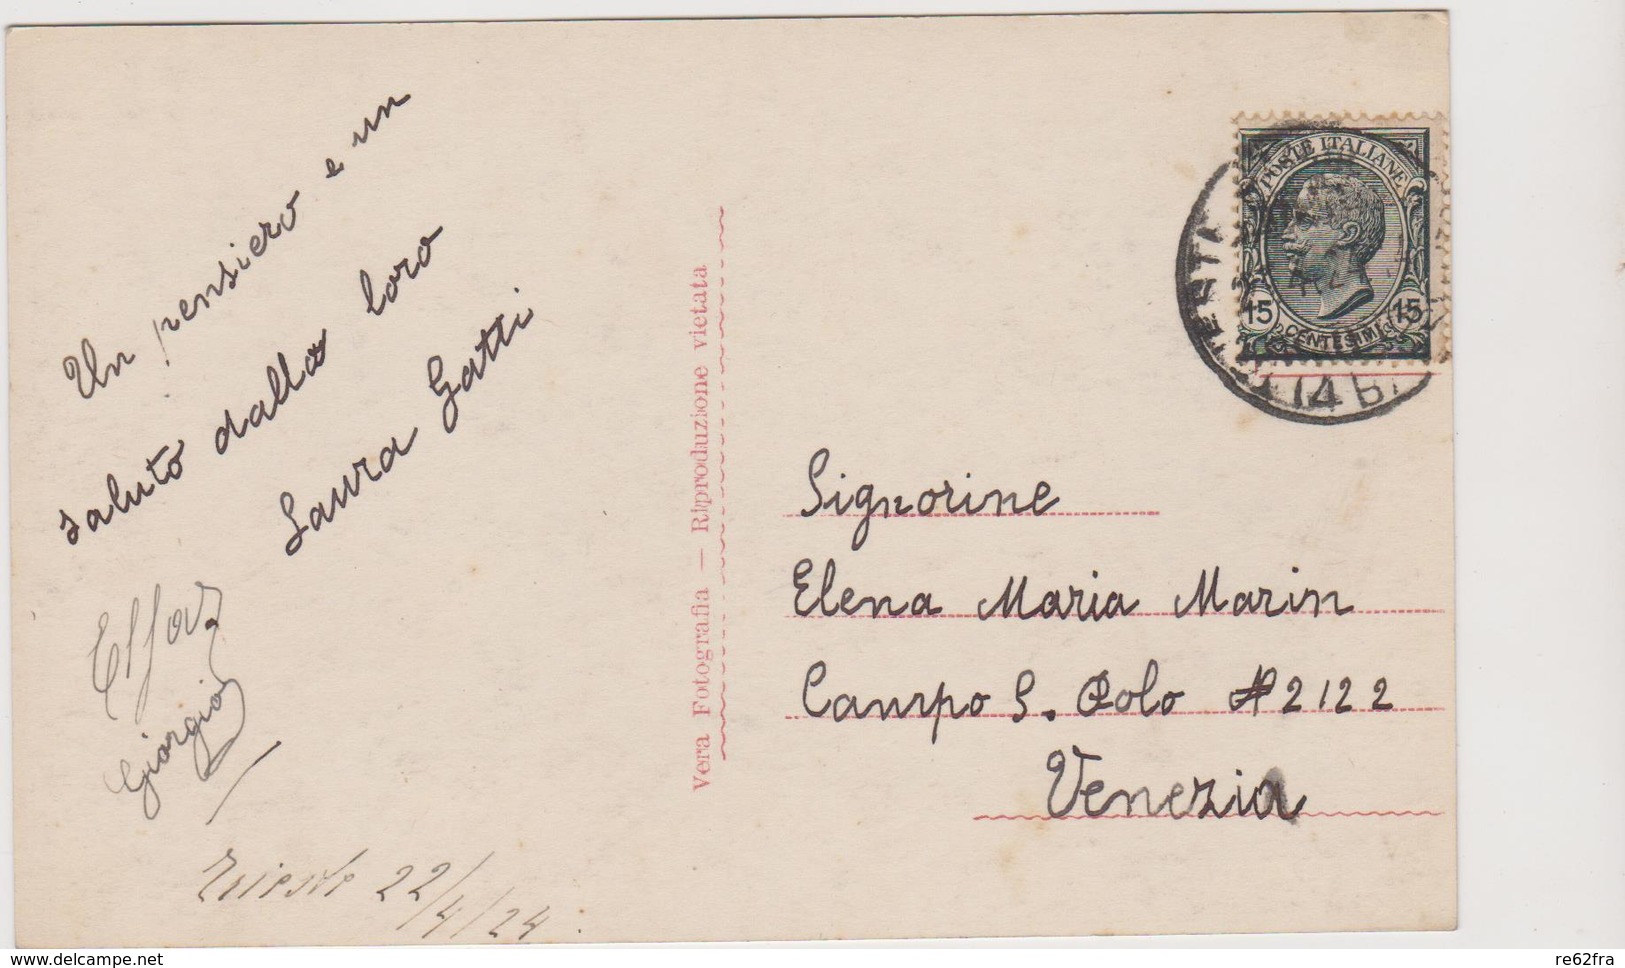 Un pensiero e un
saluto dalla loro
Laura Gatti
Giorgio
Trieste 22/4/24.
Vera Fotografia — Riproduzione vietata
POSTE ITALIANE
15 CENTESIMI 15
TRIESTE
Signorine
Elena Maria Marin
Campo S. Polo # 2122
Venezia
www.delcampe.net
re62fra